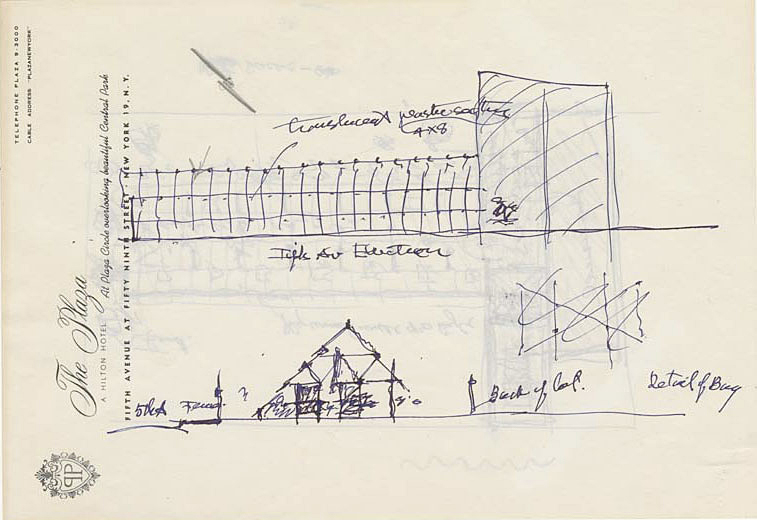 TELEPHONE PLAZA 9-3000
CABLE ADDRESS "PLAZANEWYORK"
The Plaza
A HILTON HOTEL
At Plaza Circle overlooking beautiful Central Park
FIFTH AVENUE AT FIFTY NINTH STREET · NEW YORK 19, N. Y.
PP
translucent plastic
4x8
5th Av Elevation
5th A
Fence
Back of Col.
Detail of Bay